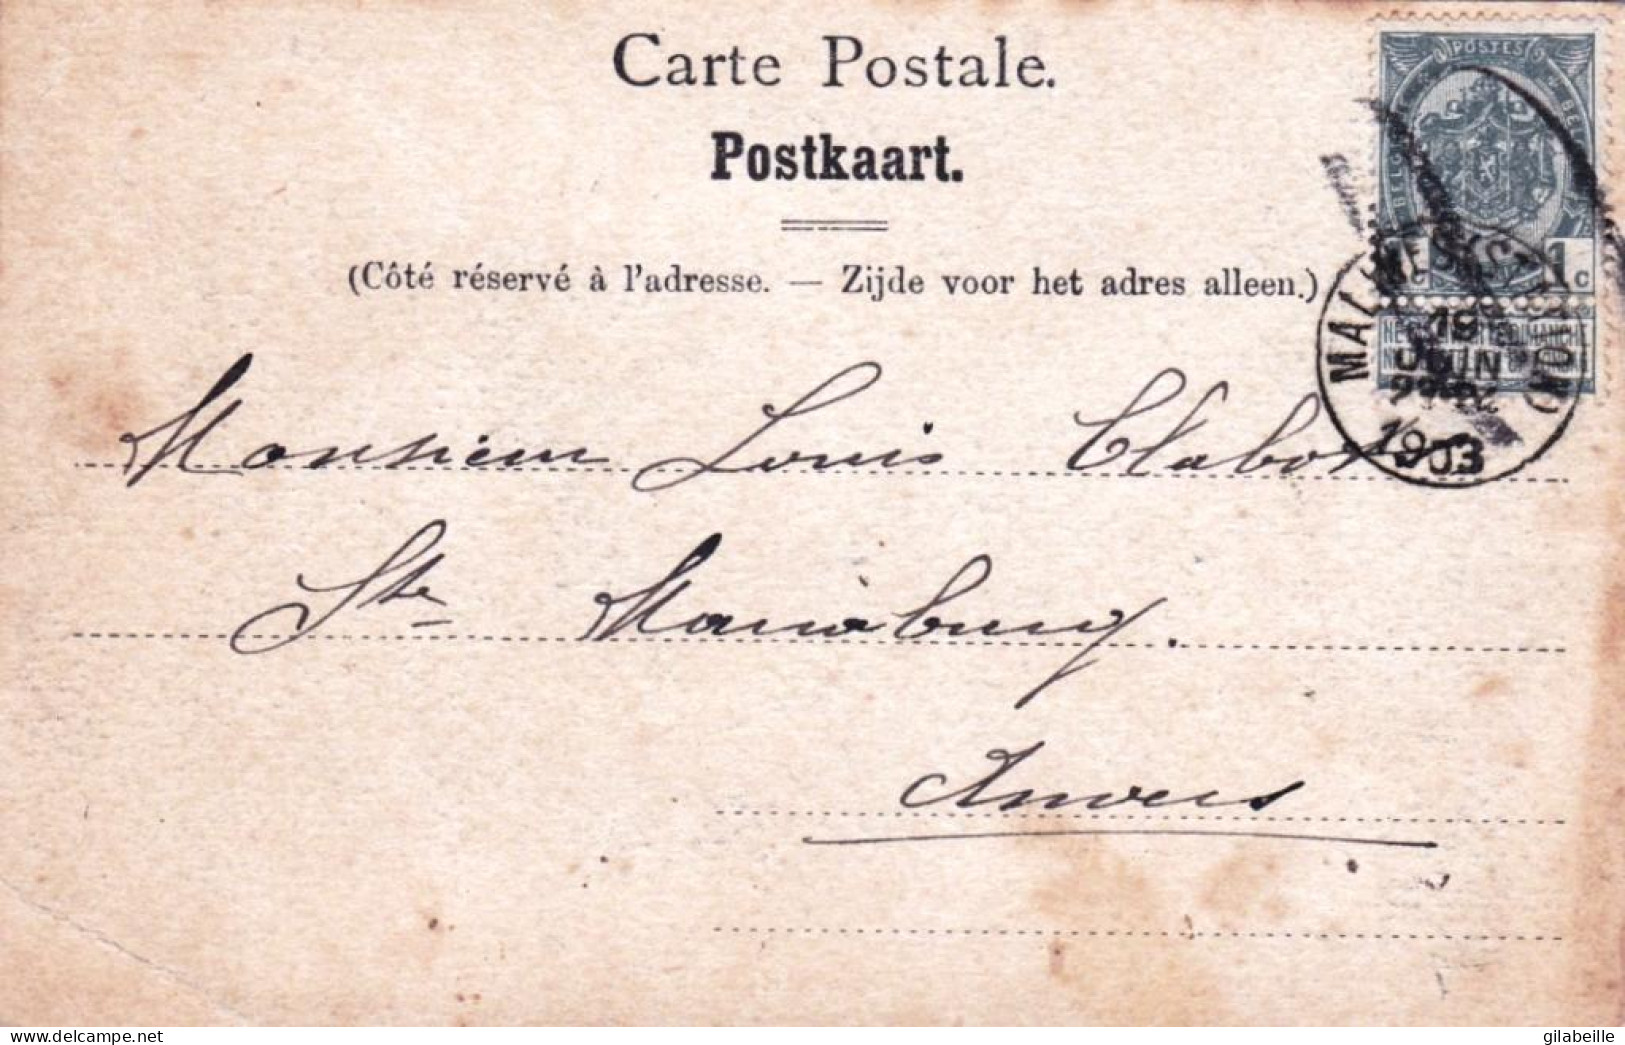 Carte Postale.
Postkaart.
(Côté réservé à l'adresse. — Zijde voor het adres alleen.)
POSTES
BELGIQUE BELGIË
1c 1c
MALINES (STATION)
19
JUIN
1903
Monsieur Louis Clabots
Ste Mariaburg.
Anvers
delcampe.net
gilabeille